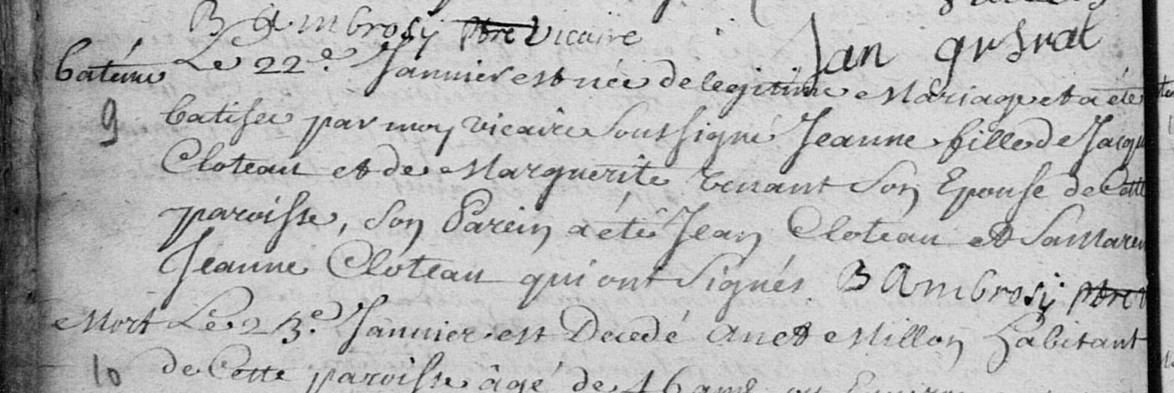 B Ambrosy ptre vicaire
Jan
batême Le 22e. Janvier est née de legitime Mariage et a été
9 batisée par moy vicaire Soussigné Jeanne fille de Jacqu
Cloteau et de Marguerite venant Son Epouse de Cette
paroisse, Son Parein a été Jean Cloteau et Sa Marein
Jeanne Cloteau qui ont Signés B Ambrosy ptre v
Mort Le 23e. Janvier est Decedé Millon habitant
10 de Cette paroisse âgé de 46 ans ou Environ